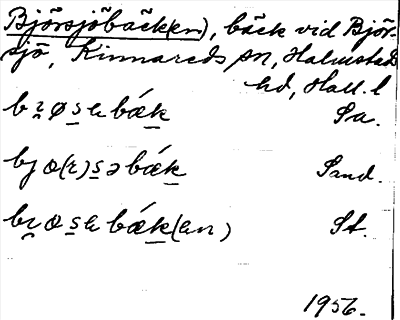 Björsjöbäck(en), bäck vid Björ-
sjö, Kinnareds sn, Halmstad
hd, Hall. l
bɼøsɐbǽk Sa.
bjɵ(r)səbǽk Sand.
bɼɵsɐbǽk(ɐn) St.
1956.